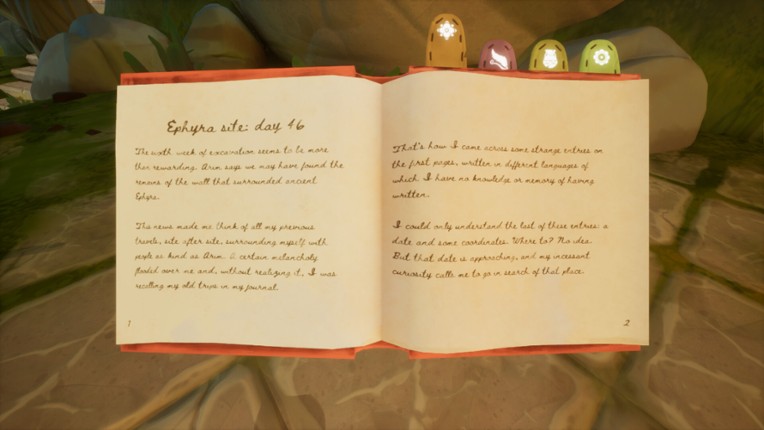 Ephyra site: day 46
The sixth week of excavation seems to be more
than rewarding. Arun says we may have found the
remains of the wall that surrounded ancient
Ephyra.
This news made me think of all my previous
travels, site after site, surrounding myself with
people as kind as Arun. A certain melancholy
flooded over me and, without realizing it, I was
recalling my old trips in my journal.
1
That's how I came across some strange entries on
the first pages, written in different languages of
which I have no knowledge or memory of having
written.
I could only understand the last of these entries: a
date and some coordinates. Where to? No idea.
But that date is approaching, and my incessant
curiosity calls me to go in search of that place.
2